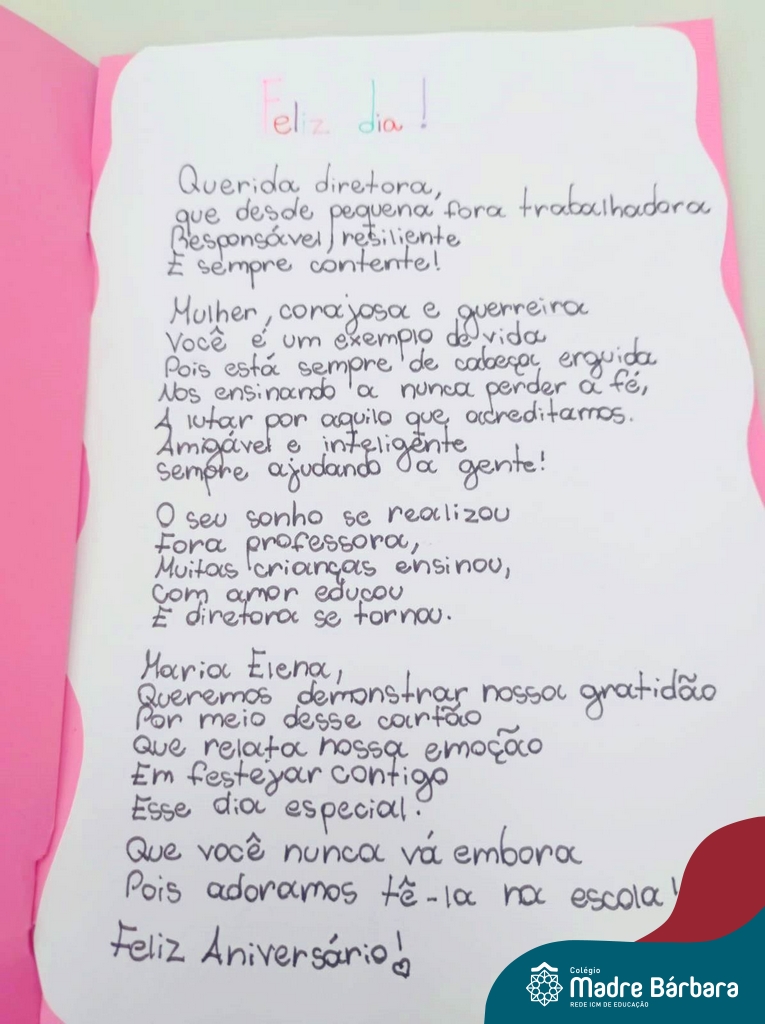 Feliz dia!
Querida diretora,
que desde pequena fora trabalhadora
Responsável, resiliente
E sempre contente!
Mulher, corajosa e guerreira
Você é um exemplo de vida
Pois está sempre de cabeça erguida
Nos ensinando a nunca perder a fé,
A lutar por aquilo que acreditamos.
Amigável e inteligente
sempre ajudando a gente!
O seu sonho se realizou
Fora professora,
Muitas crianças ensinou,
Com amor educou
E diretora se tornou.
Maria Elena,
Queremos demonstrar nossa gratidão
Por meio desse cartão
Que relata nossa emoção
Em festejar contigo
Esse dia especial.
Que você nunca vá embora
Pois adoramos tê-la na escola!
Feliz Aniversário!
Colégio
Madre Bárbara
REDE ICM DE EDUCAÇÃO